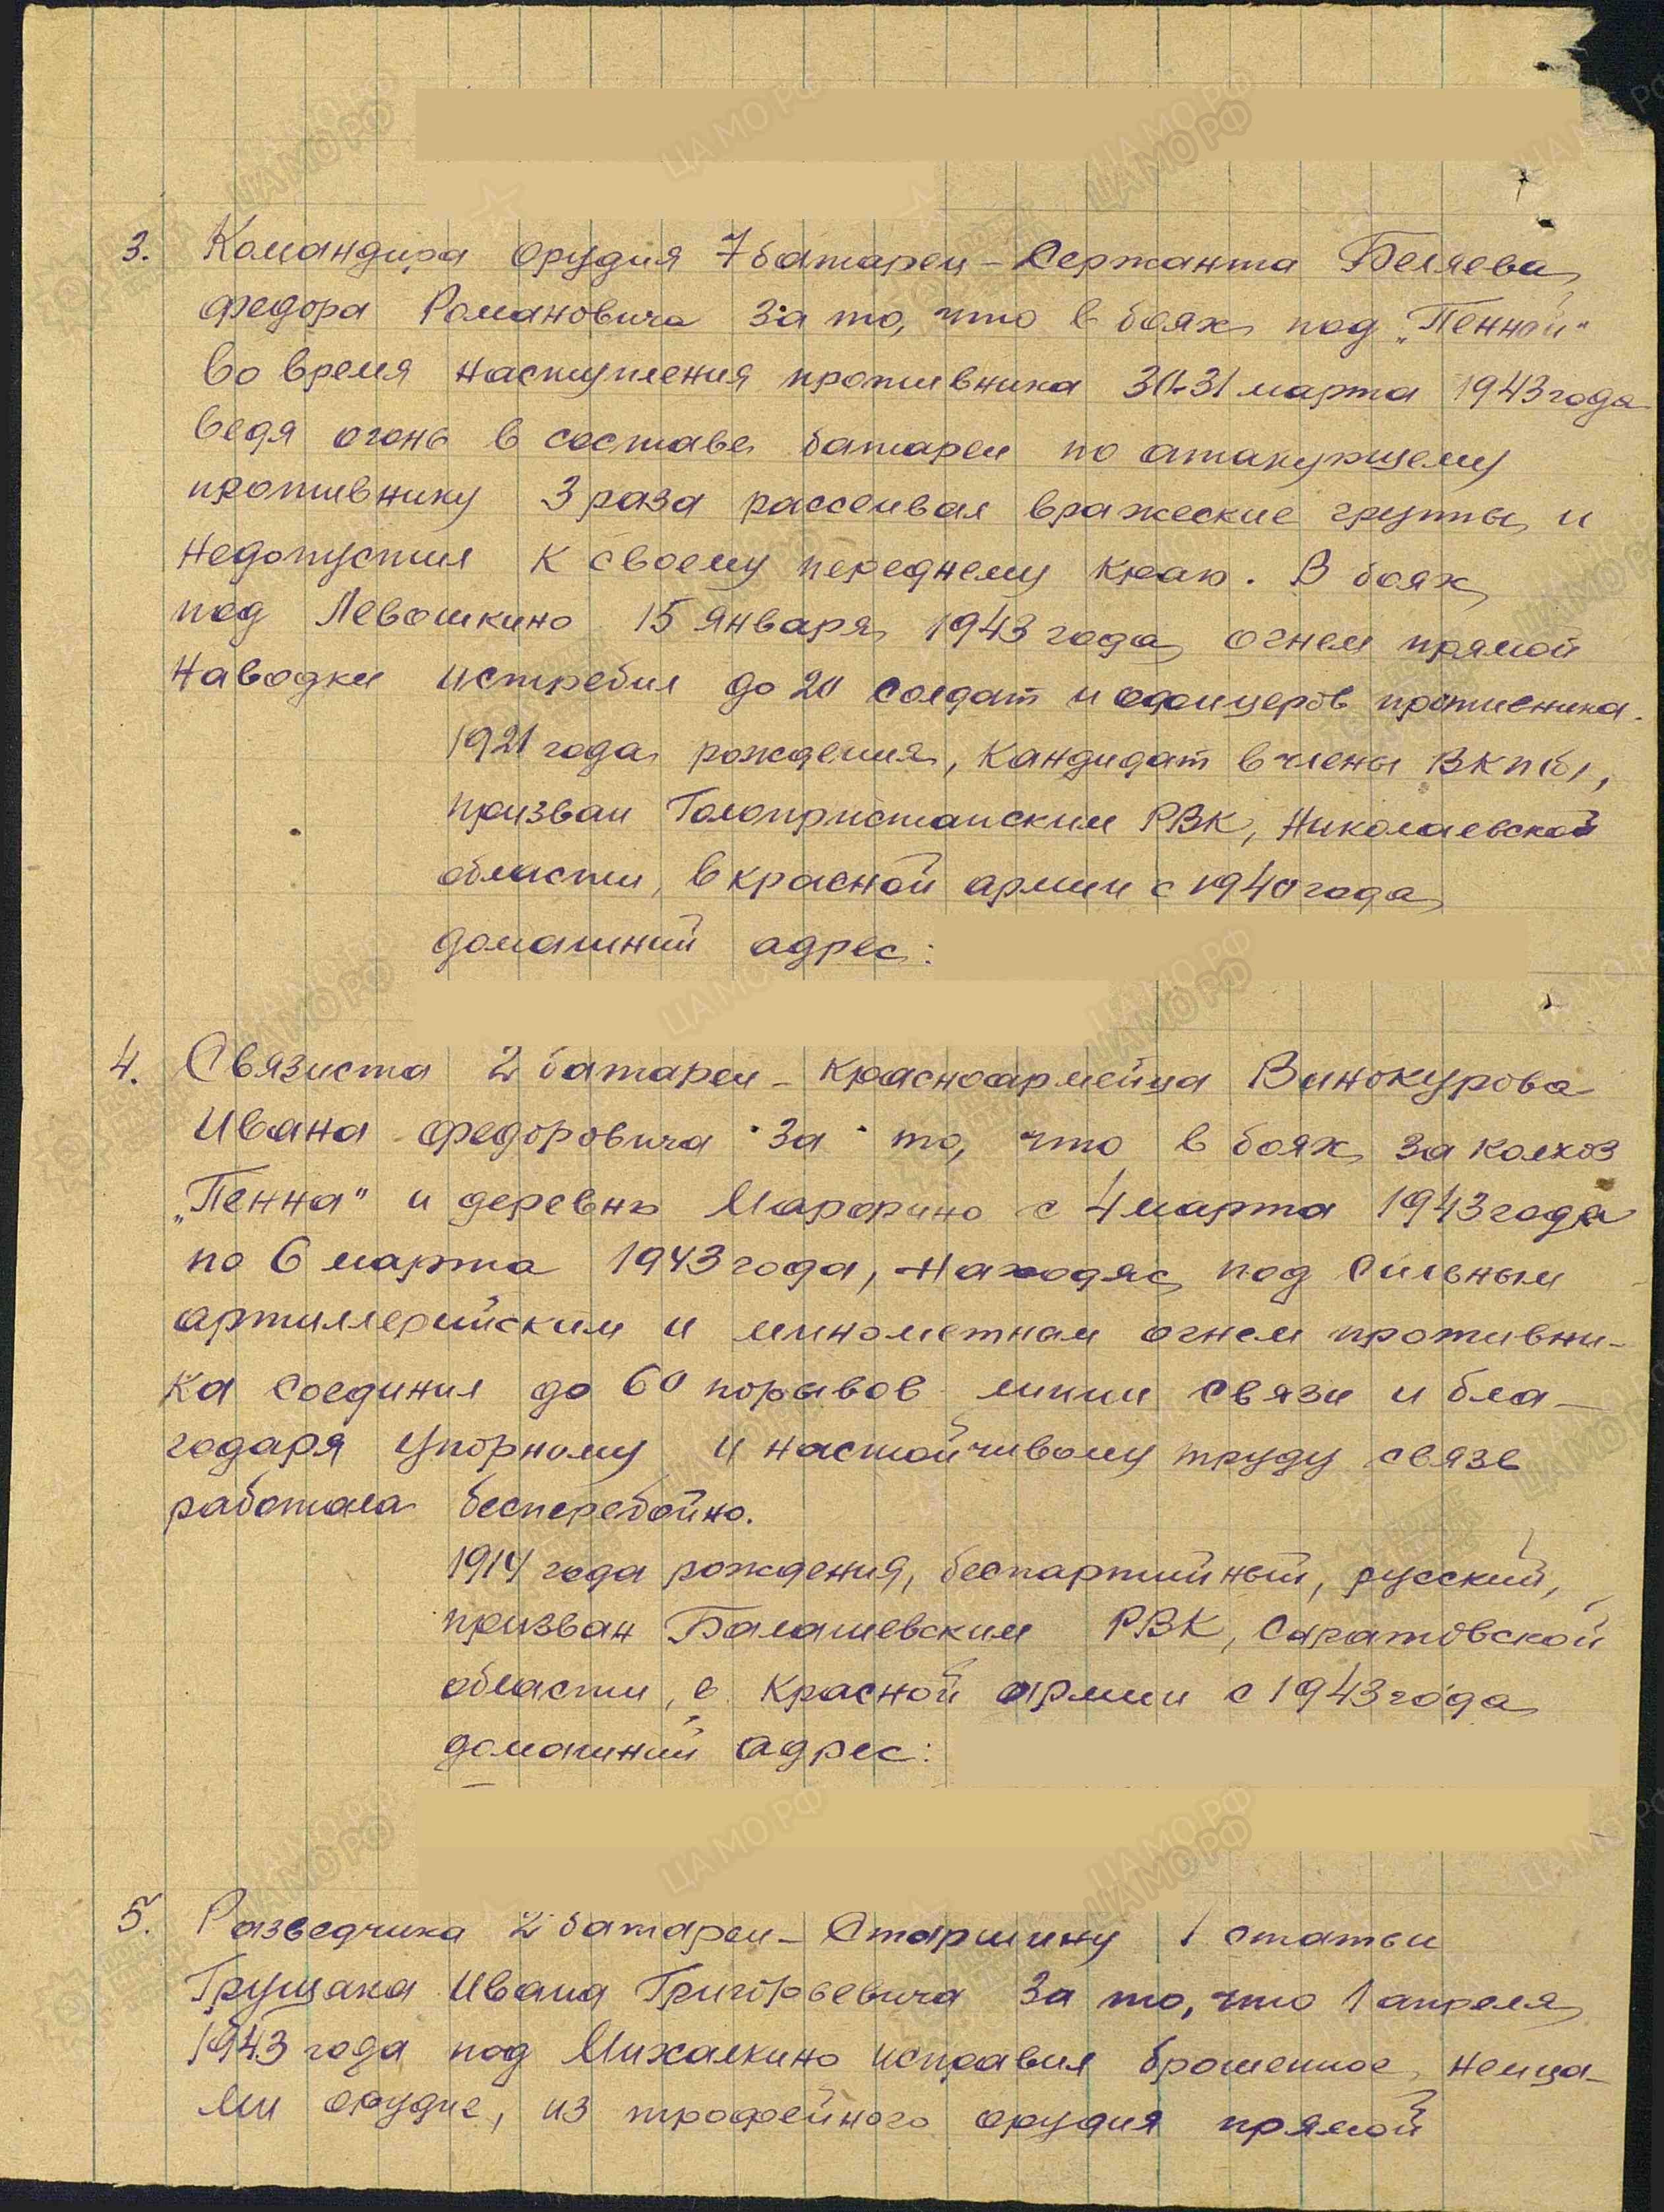 3. Командира орудия 7 батареи – Сержанта Беляева
Федора Романовича за то, что в боях под „Пенной“
во время наступления противника 30-31 марта 1943 года
ведя огонь в составе батареи по атакующему
противнику 3 раза рассеивал вражеские группы и
недопустил к своему переднему краю. В боях
под Левошкино 15 января 1943 года огнем прямой
наводки истребил до 20 солдат и офицеров противника.
1921 года рождения, кандидат в члены ВКП(б),
призван Голопристанским РВК, Николаевской
области, в красной армии с 1940 года
домашний адрес:
4. Связиста 2 батареи – красноармейца Винокурова
Ивана Федоровича за то, что в боях за колхоз
„Пенна“ и деревнь Марфино с 4 марта 1943 года
по 6 марта 1943 года, находяс под сильным
артиллерийским и минометном огнем противни-
ка соединил до 60 порывов линии связи и бла-
годаря упорному и настойчивому труду связь
работала бесперебойно.
1914 года рождения, беспартийный, русский,
призван Балашевским РВК, Саратовской
области, в красной армии с 1943 года
домашний адрес:
5. Разведчика 2 батареи – Старшину 1 статьи
Грущака Ивана Григорьевича за то, что 1 апреля
1943 года под Михалкино исправил брошенное немца-
ми орудие, из трофейного орудия прямой